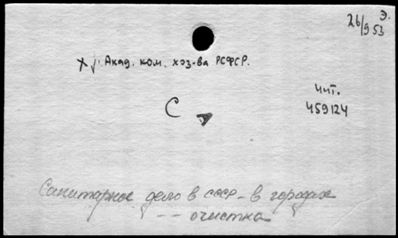 Э.
26/953
Х у. Акад. ком. хоз-ва РСФСР.
Чит.
459124
С
Санитарное дело в СССР - в городах
- - очистка